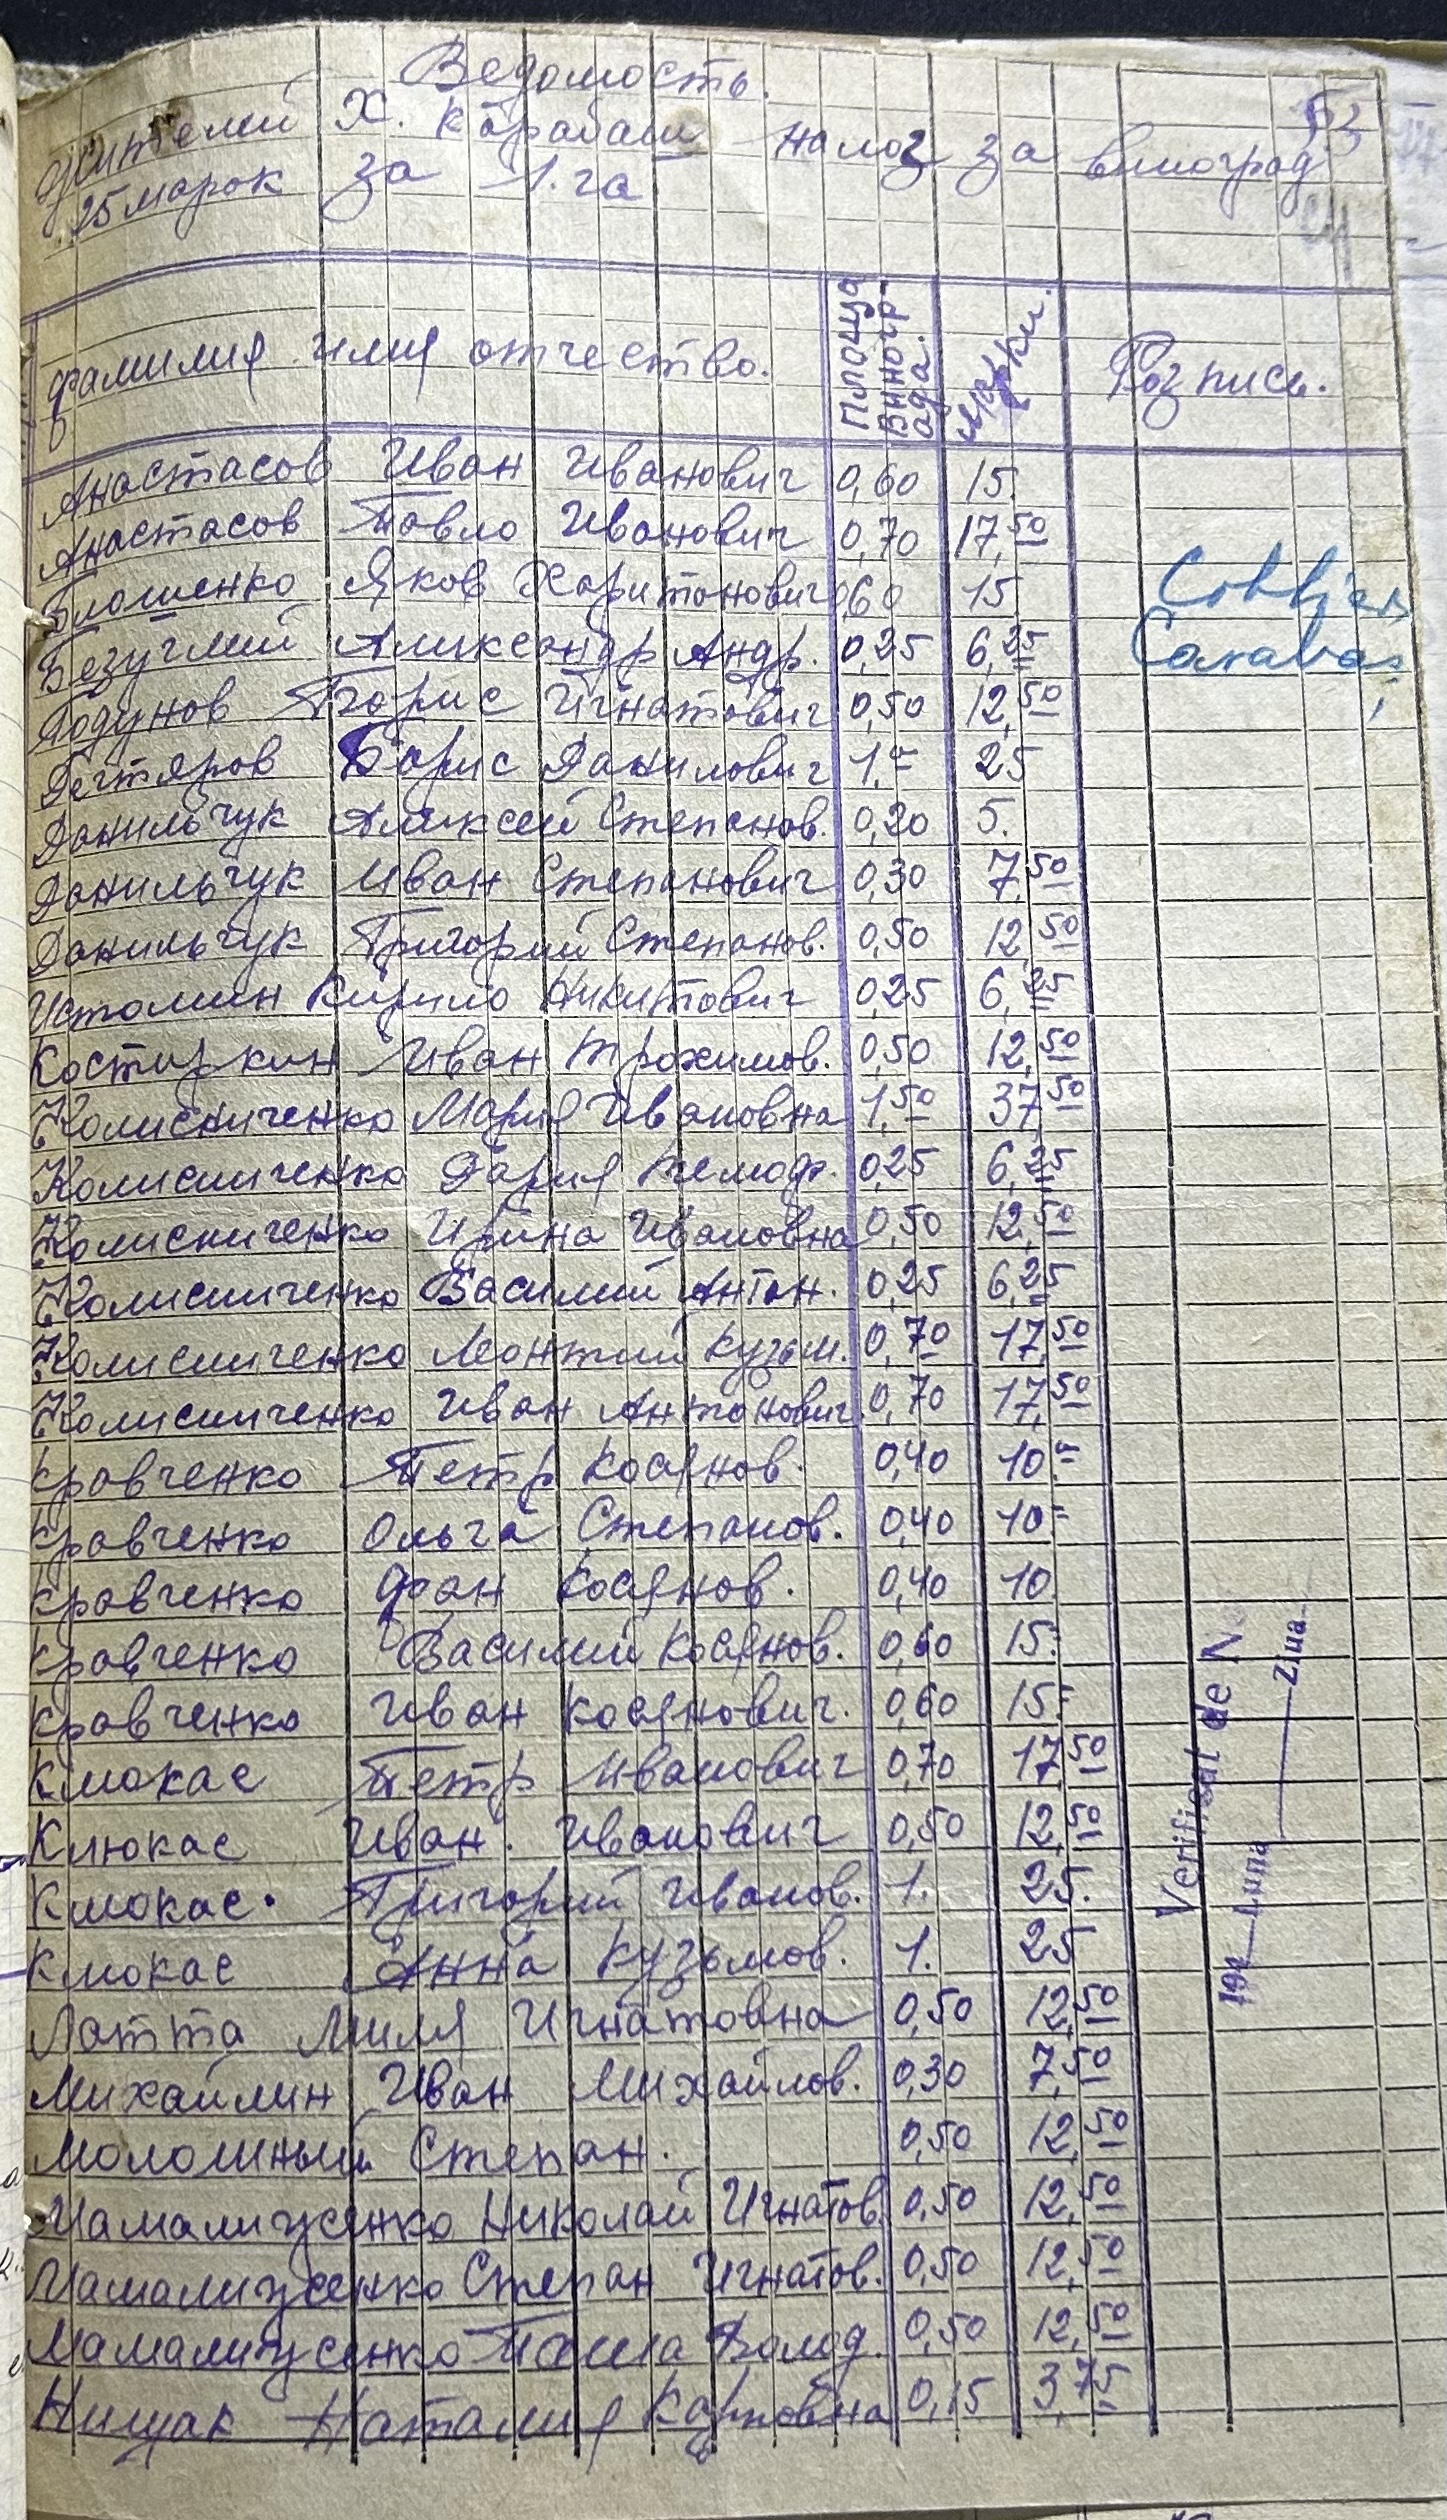 Ведомость.
53
жителей Х. Карабаш налог за виноград
25 марок за 1. га
фамилия имя отчество.
Площа Виногр-ада.
марки.
Розпись.
Анастасов Иван Иванович 0,60 15.
Анастасов Павло Иванович 0,70 17,50
Блошенко Яков Харитонович 0,60 15
Безуглий Александр Андр. 0,25 6,25
Годунов Борис Игнатович 0,50 12,50
Дегтяров Борис Данилович 1,= 25
Данильчук Алексей Степанов. 0,20 5.
Данильчук Иван Степанович 0,30 7,50
Данильчук Григорий Степанов. 0,50 12,50
Истомин Кирило Никитович 0,25 6,25
Костиркин Иван Трохимов. 0,50 12,50
Колисниченко Мария Ивановна 1,50 37,50
Колисниченко Дария 0,25 6,25
Колисниченко Ирина Ивановна 0,50 12,50
Колисниченко Василий Антон. 0,25 6,25
Колисниченко Леонтий Кузьм. 0,70 17,50
Колисниченко Иван Антонович 0,70 17,50
Кравченко Петр Косянов. 0,40 10.=
Кравченко Ольга Степанов. 0,40 10=
Кравченко Фан Косянов. 0,40 10
Кравченко Василий Косянов. 0,60 15=
Кравченко Иван Косянович. 0,60 15=
Клюкас Петр Иванович 0,70 17,50
Клюкас Иван. Иванович 0,50 12,50
Клюкас. Григорий Иванов. 1. 25.
Клюкас Анна Кузьмов. 1. 25
Латта Лиля Игнатовна 0,50 12,50
Михайлин Иван Михайлов. 0,30 7,50
Моломиный Степан. 0,50 12,50
Мамалигусенко Николай Игнатов. 0,50 12,50
Мамалигусенко Степан Игнатов. 0,50 12,50
Мамалигусенко Паша Волод. 0,50 12,50
Нищак Наталия Карповна 0,15 3,75
Carabaș
Verificat de N
194 Luna Ziua